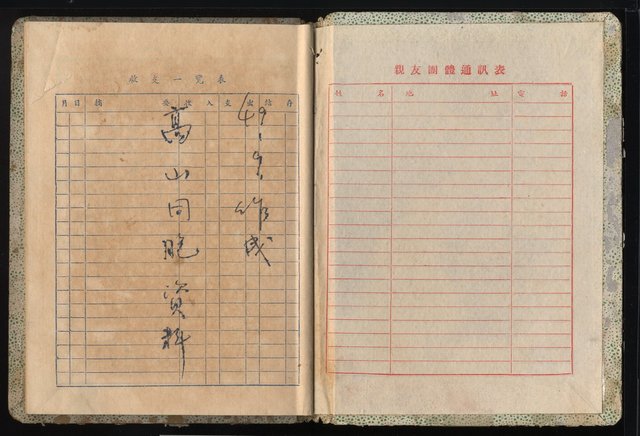 收支一覽表
月 日 摘 要 收入 支出 結存
49.9.作成
高山同胞資料
親友團體通訊表
姓 名 地 址 電 話